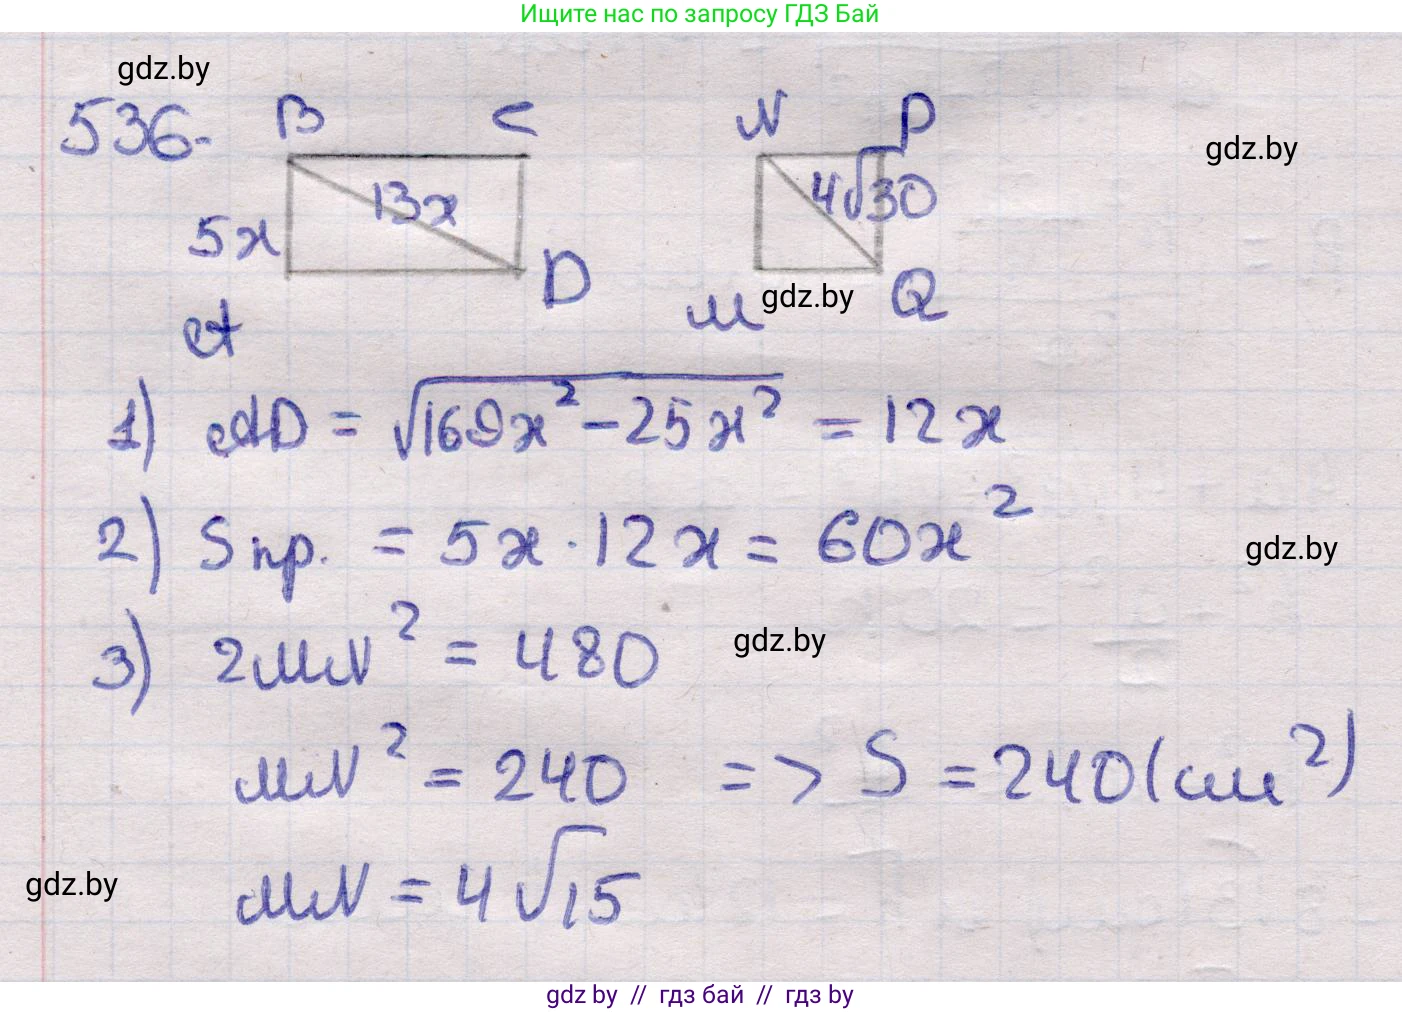 Ищите нас по запросу ГДЗ Бай
gdz.by
536.
B C
N P
gdz.by
13x
4√30
5x
D
M
gdz.by
Q
A
1) AD = √169x² - 25x² = 12x
2) Sпр. = 5x · 12x = 60x²
gdz.by
3) 2MN² = 480
gdz.by
MN² = 240 => S = 240(см²)
gdz.by
MN = 4√15
gdz by // гдз бай // гдз by